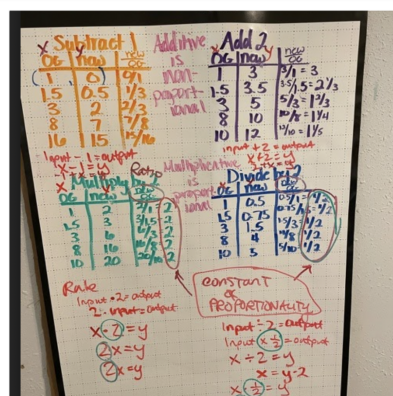 x Subtract 1
y
OG new new/OG
(1, 0) 0/1
1.5 0.5 1/3
3 2 2/3
8 7 7/8
16 15 15/16
Input - 1 = output
x - 1 = y
Additive
is
non-
proport-
ional
Add 2
x y
OG new new/OG
1 3 3/1 = 3
1.5 3.5 3.5/1.5 = 2 1/3
3 5 5/3 = 1 2/3
8 10 10/8 = 1 1/4
10 12 12/10 = 1 1/5
input + 2 = output
x + 2 = y
Multiplicative
is
proport-
ional
Multiply by 2
Ratio
OG new
1 2 2/1 2
1.5 3 3/1.5 2
3 6 6/3 2
8 16 16/8 2
10 20 20/10 2
Divide by 2
OG new
1 0.5 0.5/1 = 1/2
1.5 0.75 0.75/1.5 = 1/2
3 1.5 1.5/3 = 1/2
8 4 4/8 1/2
10 5 5/10 1/2
CONSTANT
OF
PROPORTIONALITY
Rule
Input · 2 = output
2 · input = output
x · 2 = y
2x = y
2x = y
Input ÷ 2 = output
Input x 1/2 = output
x ÷ 2 = y
x = y · 2
x · 1/2 = y